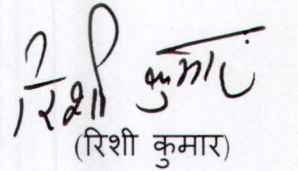 रिशी कुमार
(रिशी कुमार)